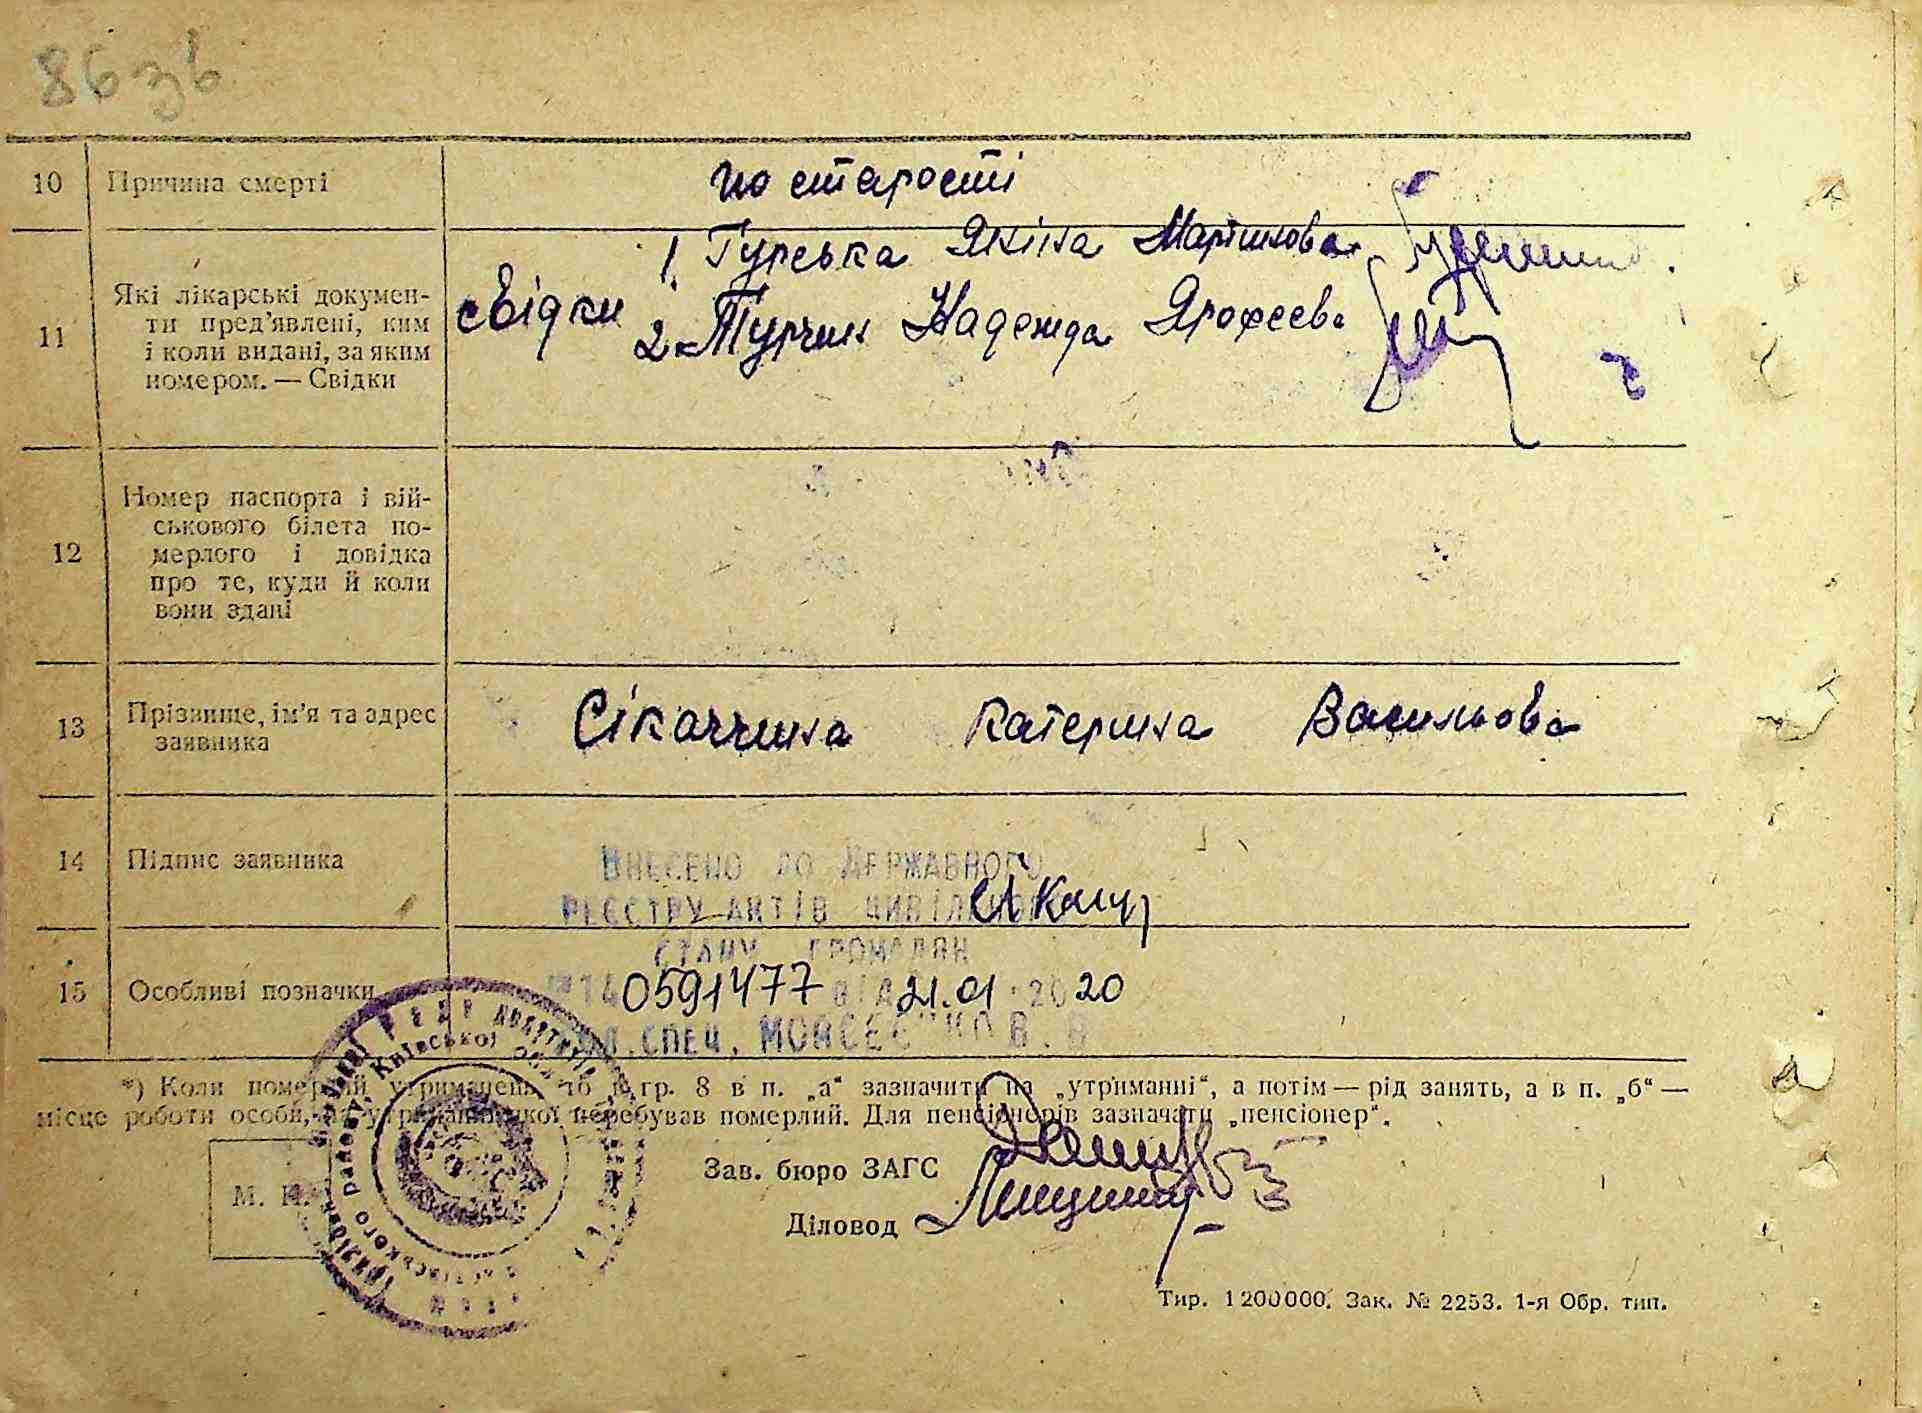 86 зв
10 Причина смерті по старості
11 Які лікарські докумен-
ти пред'явлені, ким
і коли видані, за яким
номером. — Свідки
свідки 1. Гурська Яніна Мартинова
2. Турчин Надежда Ярофеева
12 Номер паспорта і вій-
ськового білета по-
мерлого і довідка
про те, куди й коли
вони здані
13 Прізвище, ім'я та адрес
заявника
Сікаччина Катерина Васильова
14 Підпис заявника
Внесено до Державного
реєстру актів цивільного
стану громадян
15 Особливі позначки
0591477 від 21.01.2020
спец.
*) Коли померлий утриманець, то в гр. 8 в п. „а“ зазначити на „утриманні“, а потім — рід занять, а в п. „б“ —
місце роботи особи, на утриманні якої перебував померлий. Для пенсіонерів зазначати „пенсіонер“.
М. П.
Зав. бюро ЗАГС
Діловод
Тир. 1200000. Зак. № 2253. 1-я Обр. тип.